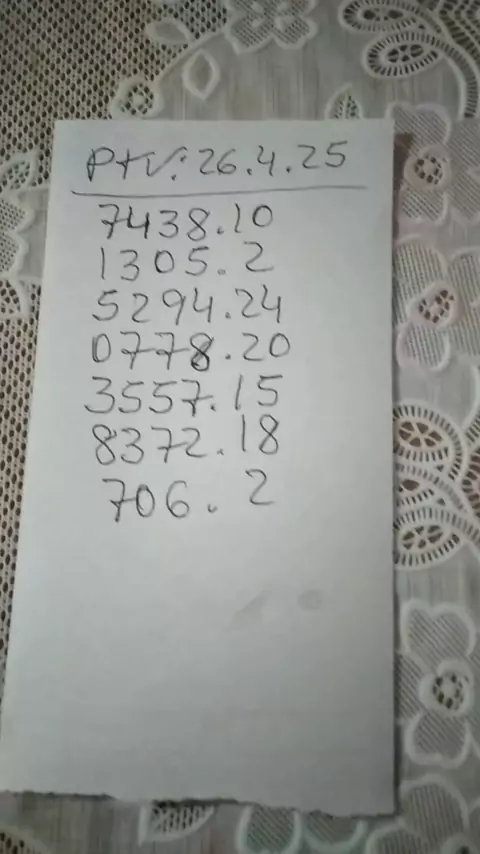 PTV: 26.4.25
7438.10
1305.2
5294.24
0778.20
3557.15
8372.18
706.2